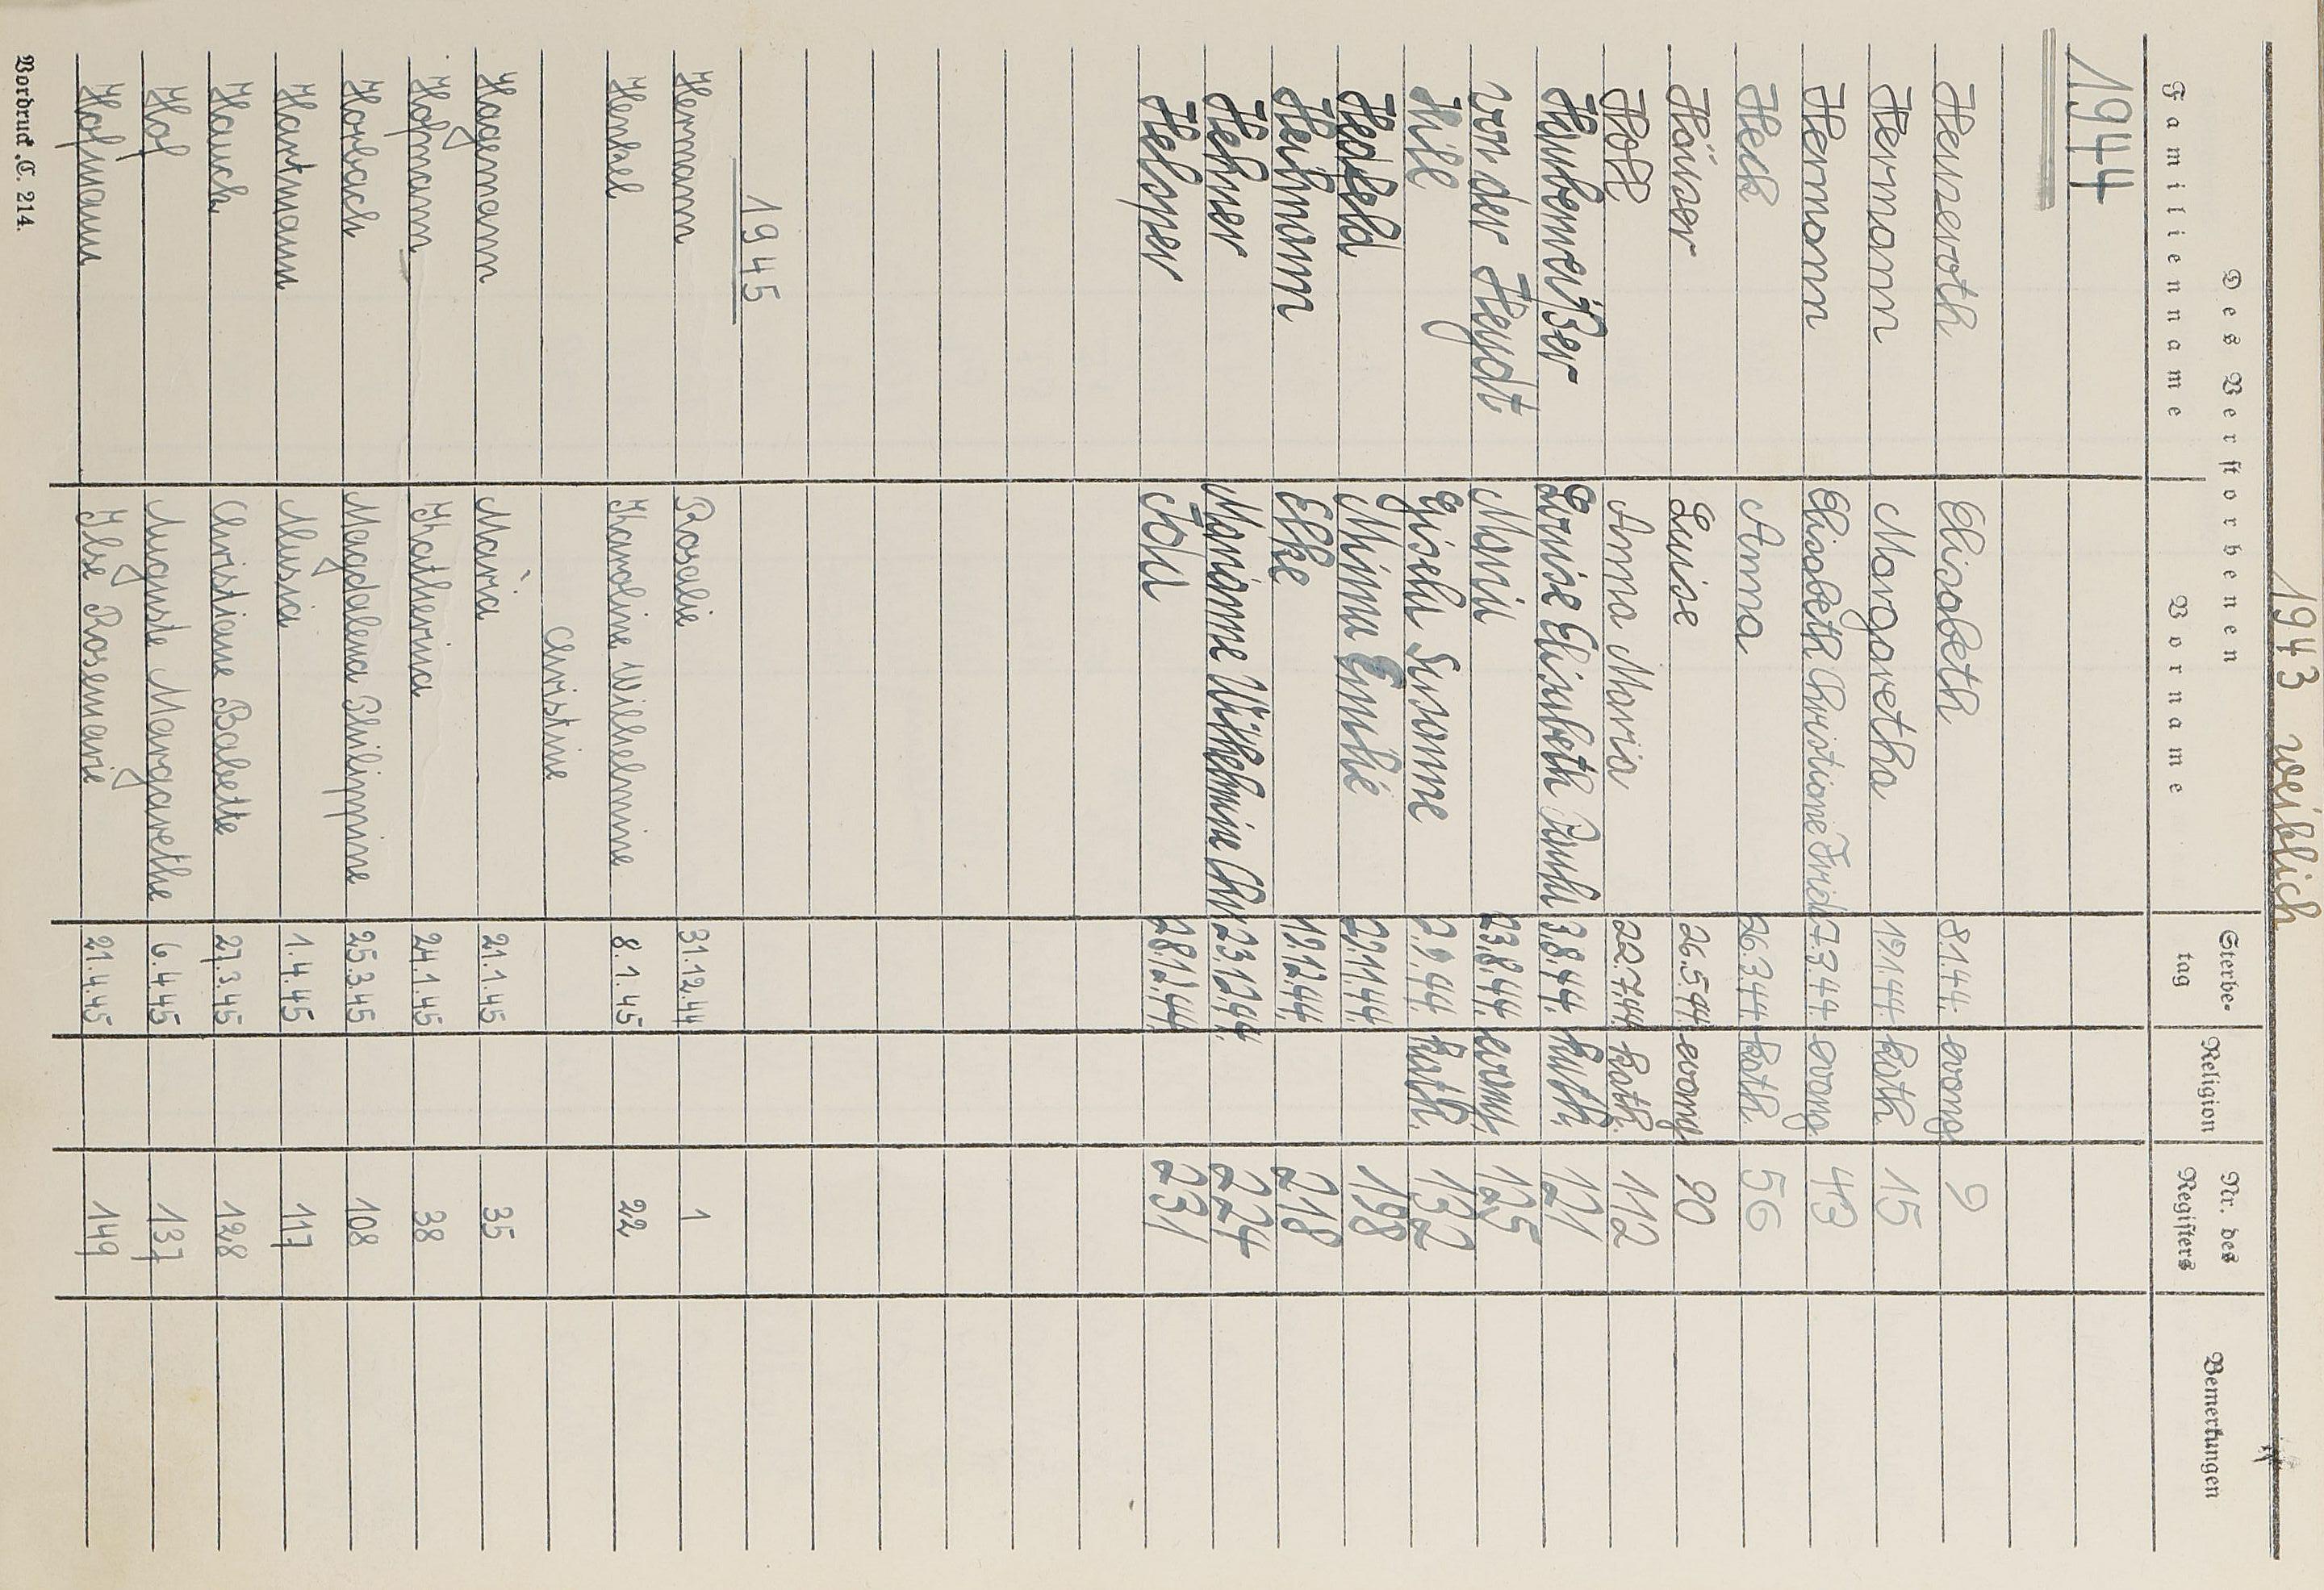 1943 weiblich
Des Verstorbenen
Familienname Vorname Sterbetag Religion Nr. des Registers Bemerkungen
1944
Heuzeroth Elisabeth 8.1.44. evang 9
Hermann Margaretha 19.1.44. kath. 15
Hermann Elisabeth Christione Fried. 7.3.44. evang 43
Heck Anna 26.3.44. kath. 56
Häuser Luise 26.5.44. evang 90
Höll Anna Maria 22.7.44. kath. 112
Haubenreißer Louise Elisabeth Paula 3.8.44. kath. 121
von der Heydt Maria 23.8.44. evang. 125
Hile Gisela Susanne 2.9.44. kath. 132
Hedfeld Minna Emilie 22.11.44. 198
Heihmann Elke 19.12.44. 218
Hehner Marianne Wilhelmine Chr. 23.12.44. 224
Helsper Ida 28.12.44. 231
1945
Hermann Rosalie 31.12.44 1
Henkel Karoline Wilhelmine 8.1.45 22
Christine
Hagemann Maria 21.1.45 35
Hofmann Katherina 24.1.45 38
Horbach Magdalena Philippine 25.3.45 108
Hartmann Alusia 1.4.45 117
Hauch Christiane Babette 27.3.45 128
Hof Auguste Margarethe 6.4.45 137
Hofmann Ilse Rosemarie 21.4.45 149
Vordruck C. 214.